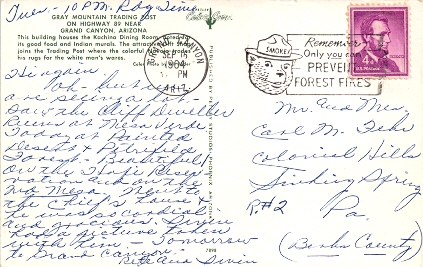 Tues - 10 P.M. Rdg Time
GRAY MOUNTAIN TRADING POST
ON HIGHWAY 89 NEAR
GRAND CANYON, ARIZONA
This building houses the Kachina Dining Room, noted for
its good food and Indian murals. The attractive arch
joins the Trading Post where the colorful Navajo trades
his rugs for the white man's wares.
Hi again
Oh but we
are seeing a lot.
Saw the Cliff Dweller
Ruins at Mesa Verde.
Today at Painted
Desert & Petrified
Forest - Beautiful!
On the Hopi Reser
the Chief's house &
he was so cordial
and gracious.
had a picture taken
with him - Tomorrow
to Grand Canyon
Rita and Irvin
GRAND CANYON
SEP 16
1964
PM
ARIZ.
SMOKEY
Remember
Only you can
PREVENT
FOREST FIRES
4¢
U.S. POSTAGE
Mr. and Mrs.
Carl M. Fehr
Colonial Hills
Sinking Spring
R#2 Pa.
(Berks County)
7898